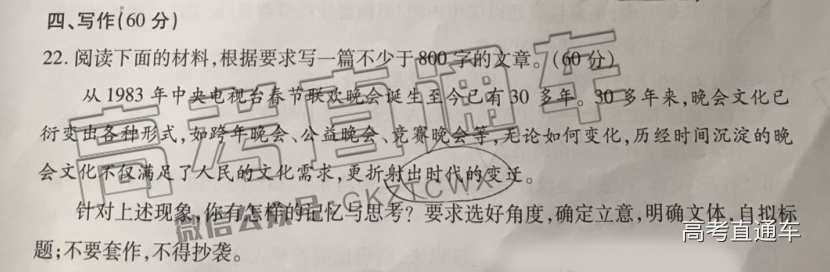 四、写作(60分)
22.阅读下面的材料,根据要求写一篇不少于800字的文章。(60分)
从1983年中央电视台春节联欢晚会诞生至今已有30多年。30多年来,晚会文化已
衍变出各种形式,如跨年晚会、公益晚会、竞赛晚会等,无论如何变化,历经时间沉淀的晚
会文化不仅满足了人民的文化需求,更折射出时代的变迁。
针对上述现象,你有怎样的记忆与思考?要求选好角度,确定立意,明确文体,自拟标
题;不要套作,不得抄袭。
高考直通车
微信公众号:GKZTCWX
高考直通车